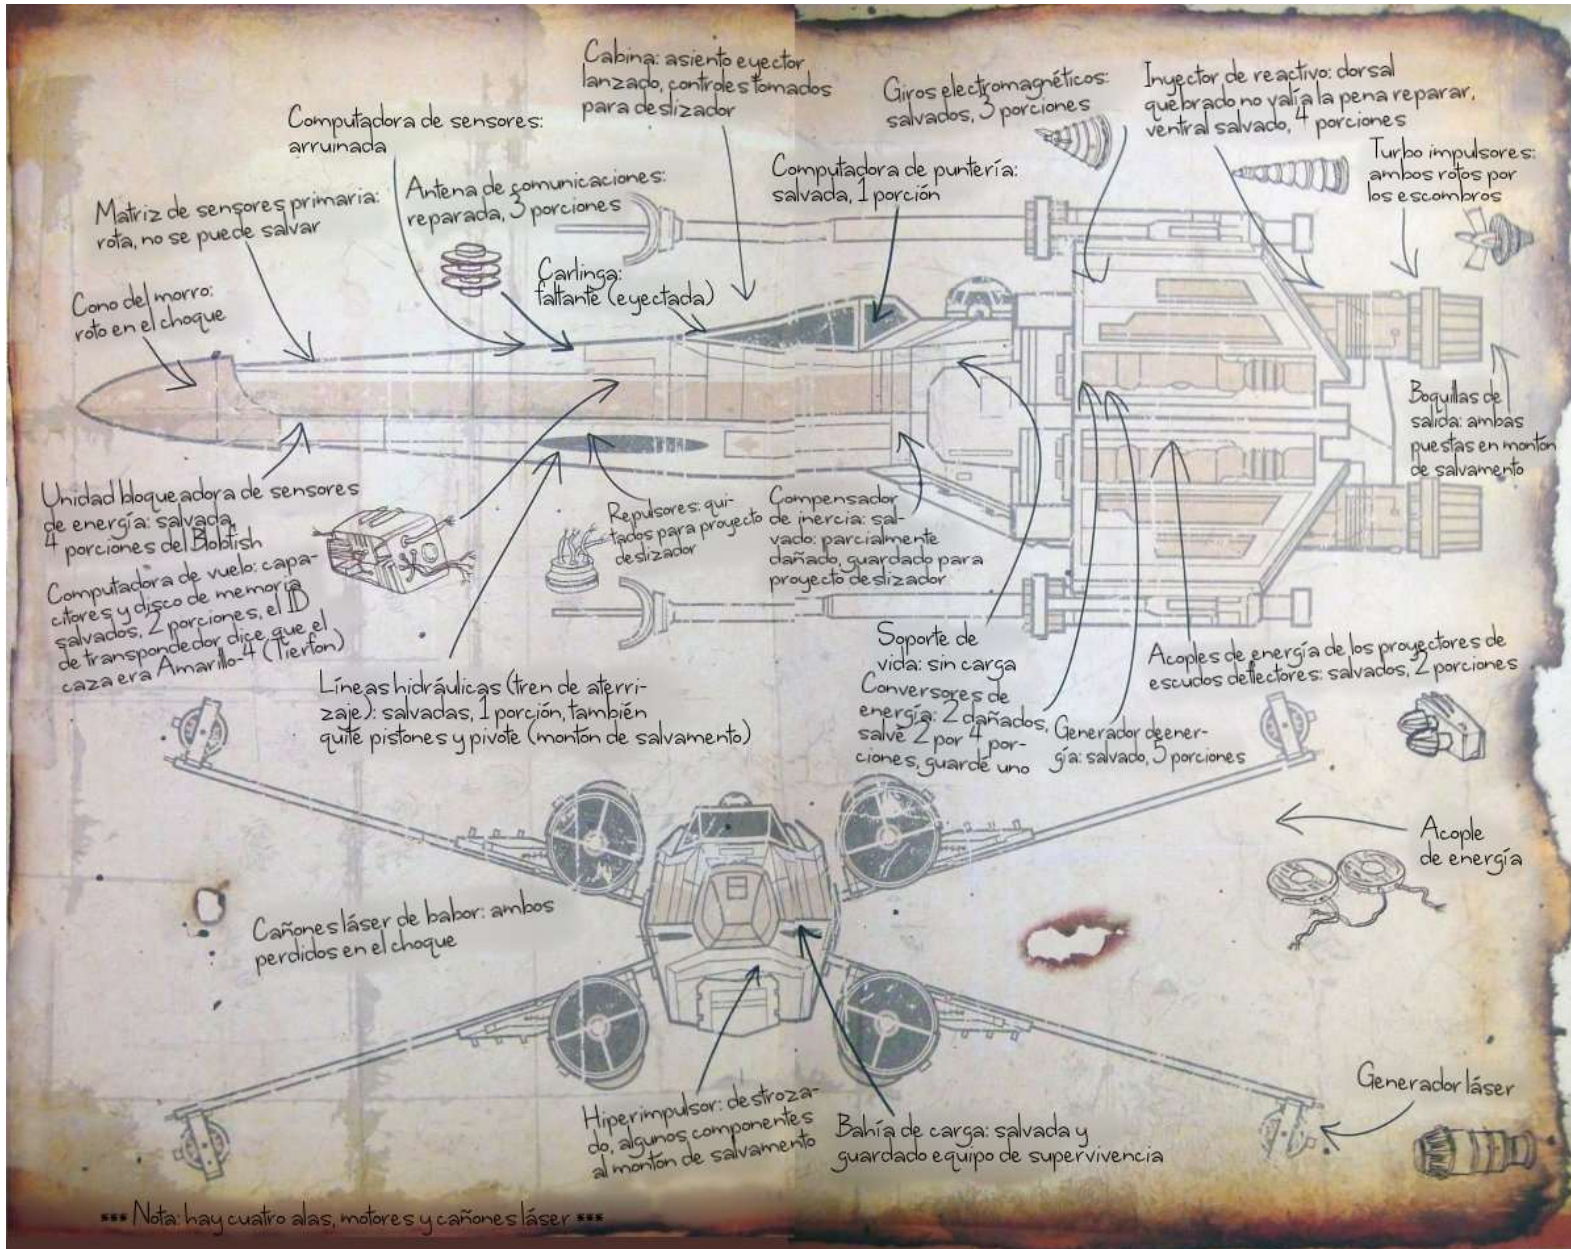 Cabina: asiento eyector
lanzado, controles tomados
para deslizador
Giros electromagnéticos:
salvados, 3 porciones
Inyector de reactivo: dorsal
quebrado no valía la pena reparar,
ventral salvado, 4 porciones
Computadora de sensores:
arruinada
Turbo impulsores:
ambos rotos por
los escombros
Computadora de puntería:
salvada, 1 porción
Antena de comunicaciones:
reparada, 3 porciones
Matriz de sensores primaria:
rota, no se puede salvar
Carlinga:
faltante (eyectada)
Cono del morro:
roto en el choque
Boquillas de
salida: ambas
puestas en montón
de salvamento
Unidad bloqueadora de sensores
de energía: salvada,
4 porciones del Blobfish
Repulsores: qui-
tados para proyecto
deslizador
Compensador
de inercia: sal-
vado: parcialmente
dañado, guardado para
proyecto deslizador
Computadora de vuelo: capa-
citores y disco de memoria
salvados, 2 porciones, el ID
de transpondedor dice que el
caza era Amarillo-4 (Tierfon)
Soporte de
vida: sin carga
Acoples de energía de los proyectores de
escudos deflectores: salvados, 2 porciones
Líneas hidráulicas (tren de aterri-
zaje): salvadas, 1 porción, también
quite pistones y pivote (montón de salvamento)
Conversores de
energía: 2 dañados,
salvé 2 por 4 por-
ciones, guardé uno
Generador de ener-
gía: salvado, 5 porciones
Acople
de energía
Cañones láser de babor: ambos
perdidos en el choque
Generador láser
Hiperimpulsor: destroza-
do, algunos componentes
al montón de salvamento
Bahía de carga: salvada y
guardado equipo de supervivencia
*** Nota: hay cuatro alas, motores y cañones láser ***